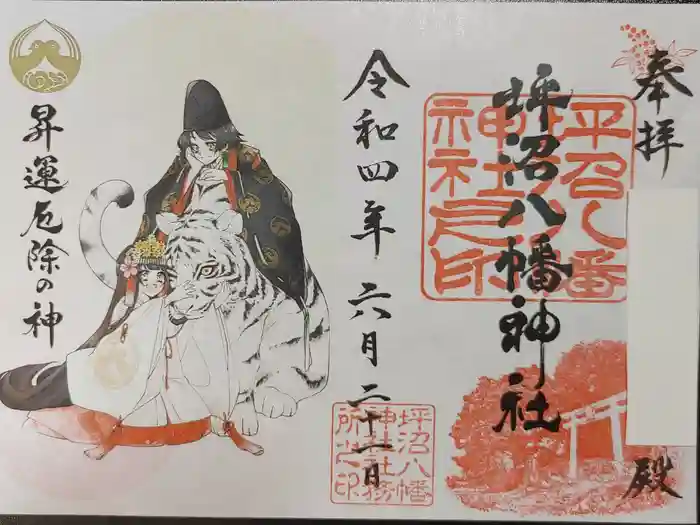 奉拝
殿
坪沼八幡神社
坪沼八幡
神社之印
令和四年 六月二十一日
坪沼八幡
神社社務
所之印
昇運厄除の神